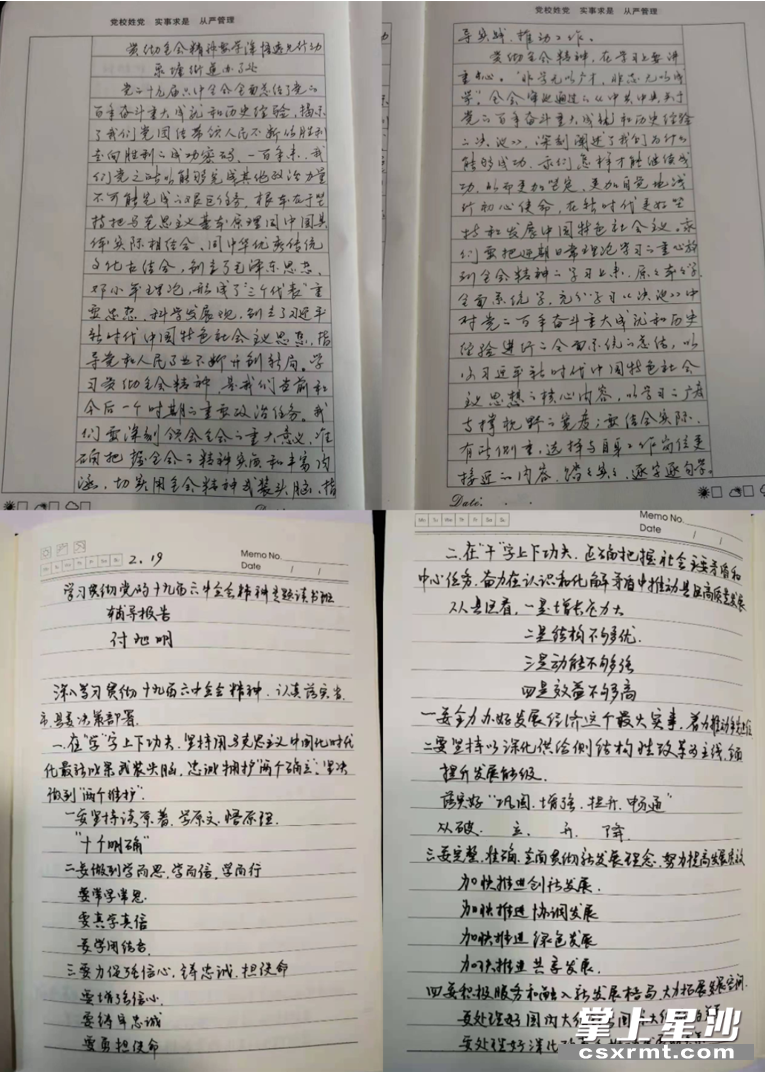 党校姓党 实事求是 从严管理
贯彻全会精神要学深悟透见行动
泉塘街道办了处
党的十九届六中全会全面总结了党的
百年奋斗重大成就和历史经验，揭示
了我们党团结带领人民不断从胜利
走向胜利的成功密码。一百年来，我
们党之所以能够完成其他政治力量
不可能完成的艰巨任务，根本在于坚
持把马克思主义基本原理同中国具
体实际相结合、同中华优秀传统
文化相结合，创立了毛泽东思想、
邓小平理论，形成了“三个代表”重
要思想、科学发展观，创立了习近平
新时代中国特色社会主义思想，指
导党和人民事业不断开创新局。学
习贯彻全会精神，是我们当前和
今后一个时期的重要政治任务。我
们要深刻领会全会的重大意义，准
确把握全会的精神实质和丰富内
涵，切实用全会精神武装头脑、指
党校姓党 实事求是 从严管理
导实践、推动工作。
贯彻全会精神，在学习上要讲
重心。“非学无以广才，非志无以成
学”。全会审议通过的《中共中央关于
党的百年奋斗重大成就和历史经验
的决议》，深刻阐述了我们为什么
能够成功、我们怎样才能继续成
功，从而更加坚定、更加自觉地践
行初心使命，在新时代更好坚
持和发展中国特色社会主义。我
们要把近期日常理论学习的重心放
到全会精神的学习上来，原原本本学、
全面系统学，充分学习《决议》中
对党的百年奋斗重大成就和历史
经验进行的全面系统的总结，以
习近平新时代中国特色社会
主义思想的核心内容，以学习的广度
支撑视野的宽度；要结合实际、
有所侧重，选择与自身工作岗位更
接近的内容，踏踏实实、逐字逐句学。
Date:
Memo No.
Mo Tu We Th Fr Sa Su
2.19
Date / /
学习贯彻党的十九届六中全会精神专题读书班
辅导报告
付旭明
深入学习贯彻十九届六中全会精神，认真落实省、
市、县委决策部署
一.在“学”字上下功夫，坚持用马克思主义中国化时代
化最新成果武装头脑，忠诚拥护“两个确立”，坚决
做到“两个维护”.
一要坚持读原著、学原文、悟原理.
“十个明确”
二要做到学而思，学而信，学而行
要常学常思
要真学真信
要学用结合
三要力促强信心，铸忠诚，担使命
要增强信心
要铸牢忠诚
要勇担使命
Memo No.
Mo Tu We Th Fr Sa Su
Date / /
二.在“干”字上下功夫，正确把握社会主要矛盾和
中心任务，奋力在认识和化解矛盾中推动县区高质量发展
从县区看，一是增长仓力大
二是结构不够优.
三是动能不够强
四是效益不够高
一要全力办好发展经济这个最大实事，着力推动争先进位
二要坚持以深化供给侧结构性改革为主线，全面
提升发展能级.
落实好“巩固、增强、提升、畅通”
从破、立、升、降
三要完整、准确、全面贯彻新发展理念，努力提高发展质效
加快推进创新发展.
加快推进协调发展
加快推进绿色发展
加快推进共享发展.
四要积极服务和融入新发展格局，大力拓展发展空间.
要处理好国内大
要处理好深化
掌上星沙
csxrmt.com